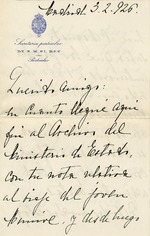 Madrid 3.2.926.
Secretaría particular
DE S. M. EL REY
Particular
Querido amigo:
en cuanto llegué aquí
fuí al Archivo del
Ministerio de Estado,
con tu nota relativa
al viaje del joven
y desde luego